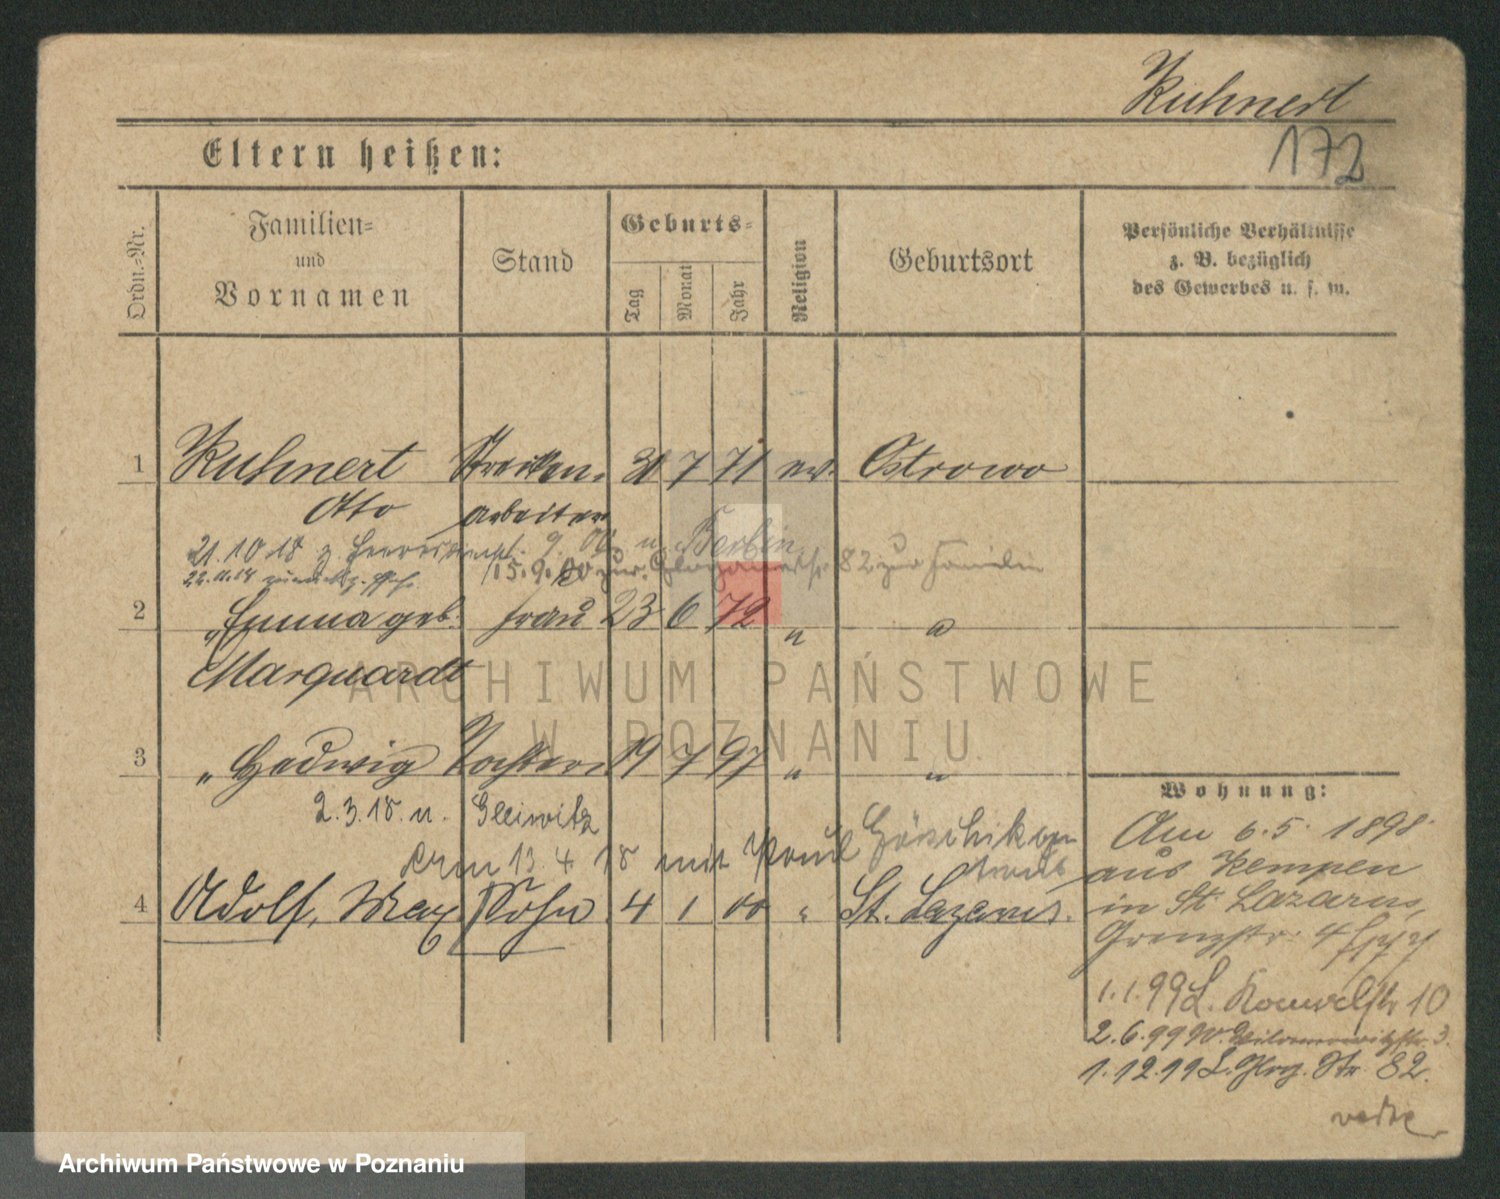 Kuhnert
172
Eltern heißen:
Ordn.-Nr.
Familien-
und
Vornamen
Stand
Geburts-
Tag
Monat
Jahr
Religion
Geburtsort
Persönliche Verhältnisse
z. B. bezüglich
des Gewerbes u. s. w.
1 Kuhnert Strecken- 7 71 ev. Ostrowo
Otto arbeiter
21.10.18 z. u. Berlin
22.11.18 15.9.00 zur. Glogauerstr. 82 zur Familie
2 " Emma geb. Frau 23 6 72 " "
Marquardt
3 " Hedwig Tochter 19 7 97 " "
2.3.18. u. Gleiwitz
13.4 18 mit Paul
4 Adolf, Max Sohn 4 1 00 " St. Lazarus.
Wohnung:
Am 6.5. 1898
aus Kempen
in St. Lazarus,
Grenzstr. 4
1.1.99 L. 10
2.6.99 W. 3.
1.12.99 L. Glog. Str. 82.
ARCHIWUM PAŃSTWOWE
W POZNANIU
Archiwum Państwowe w Poznaniu